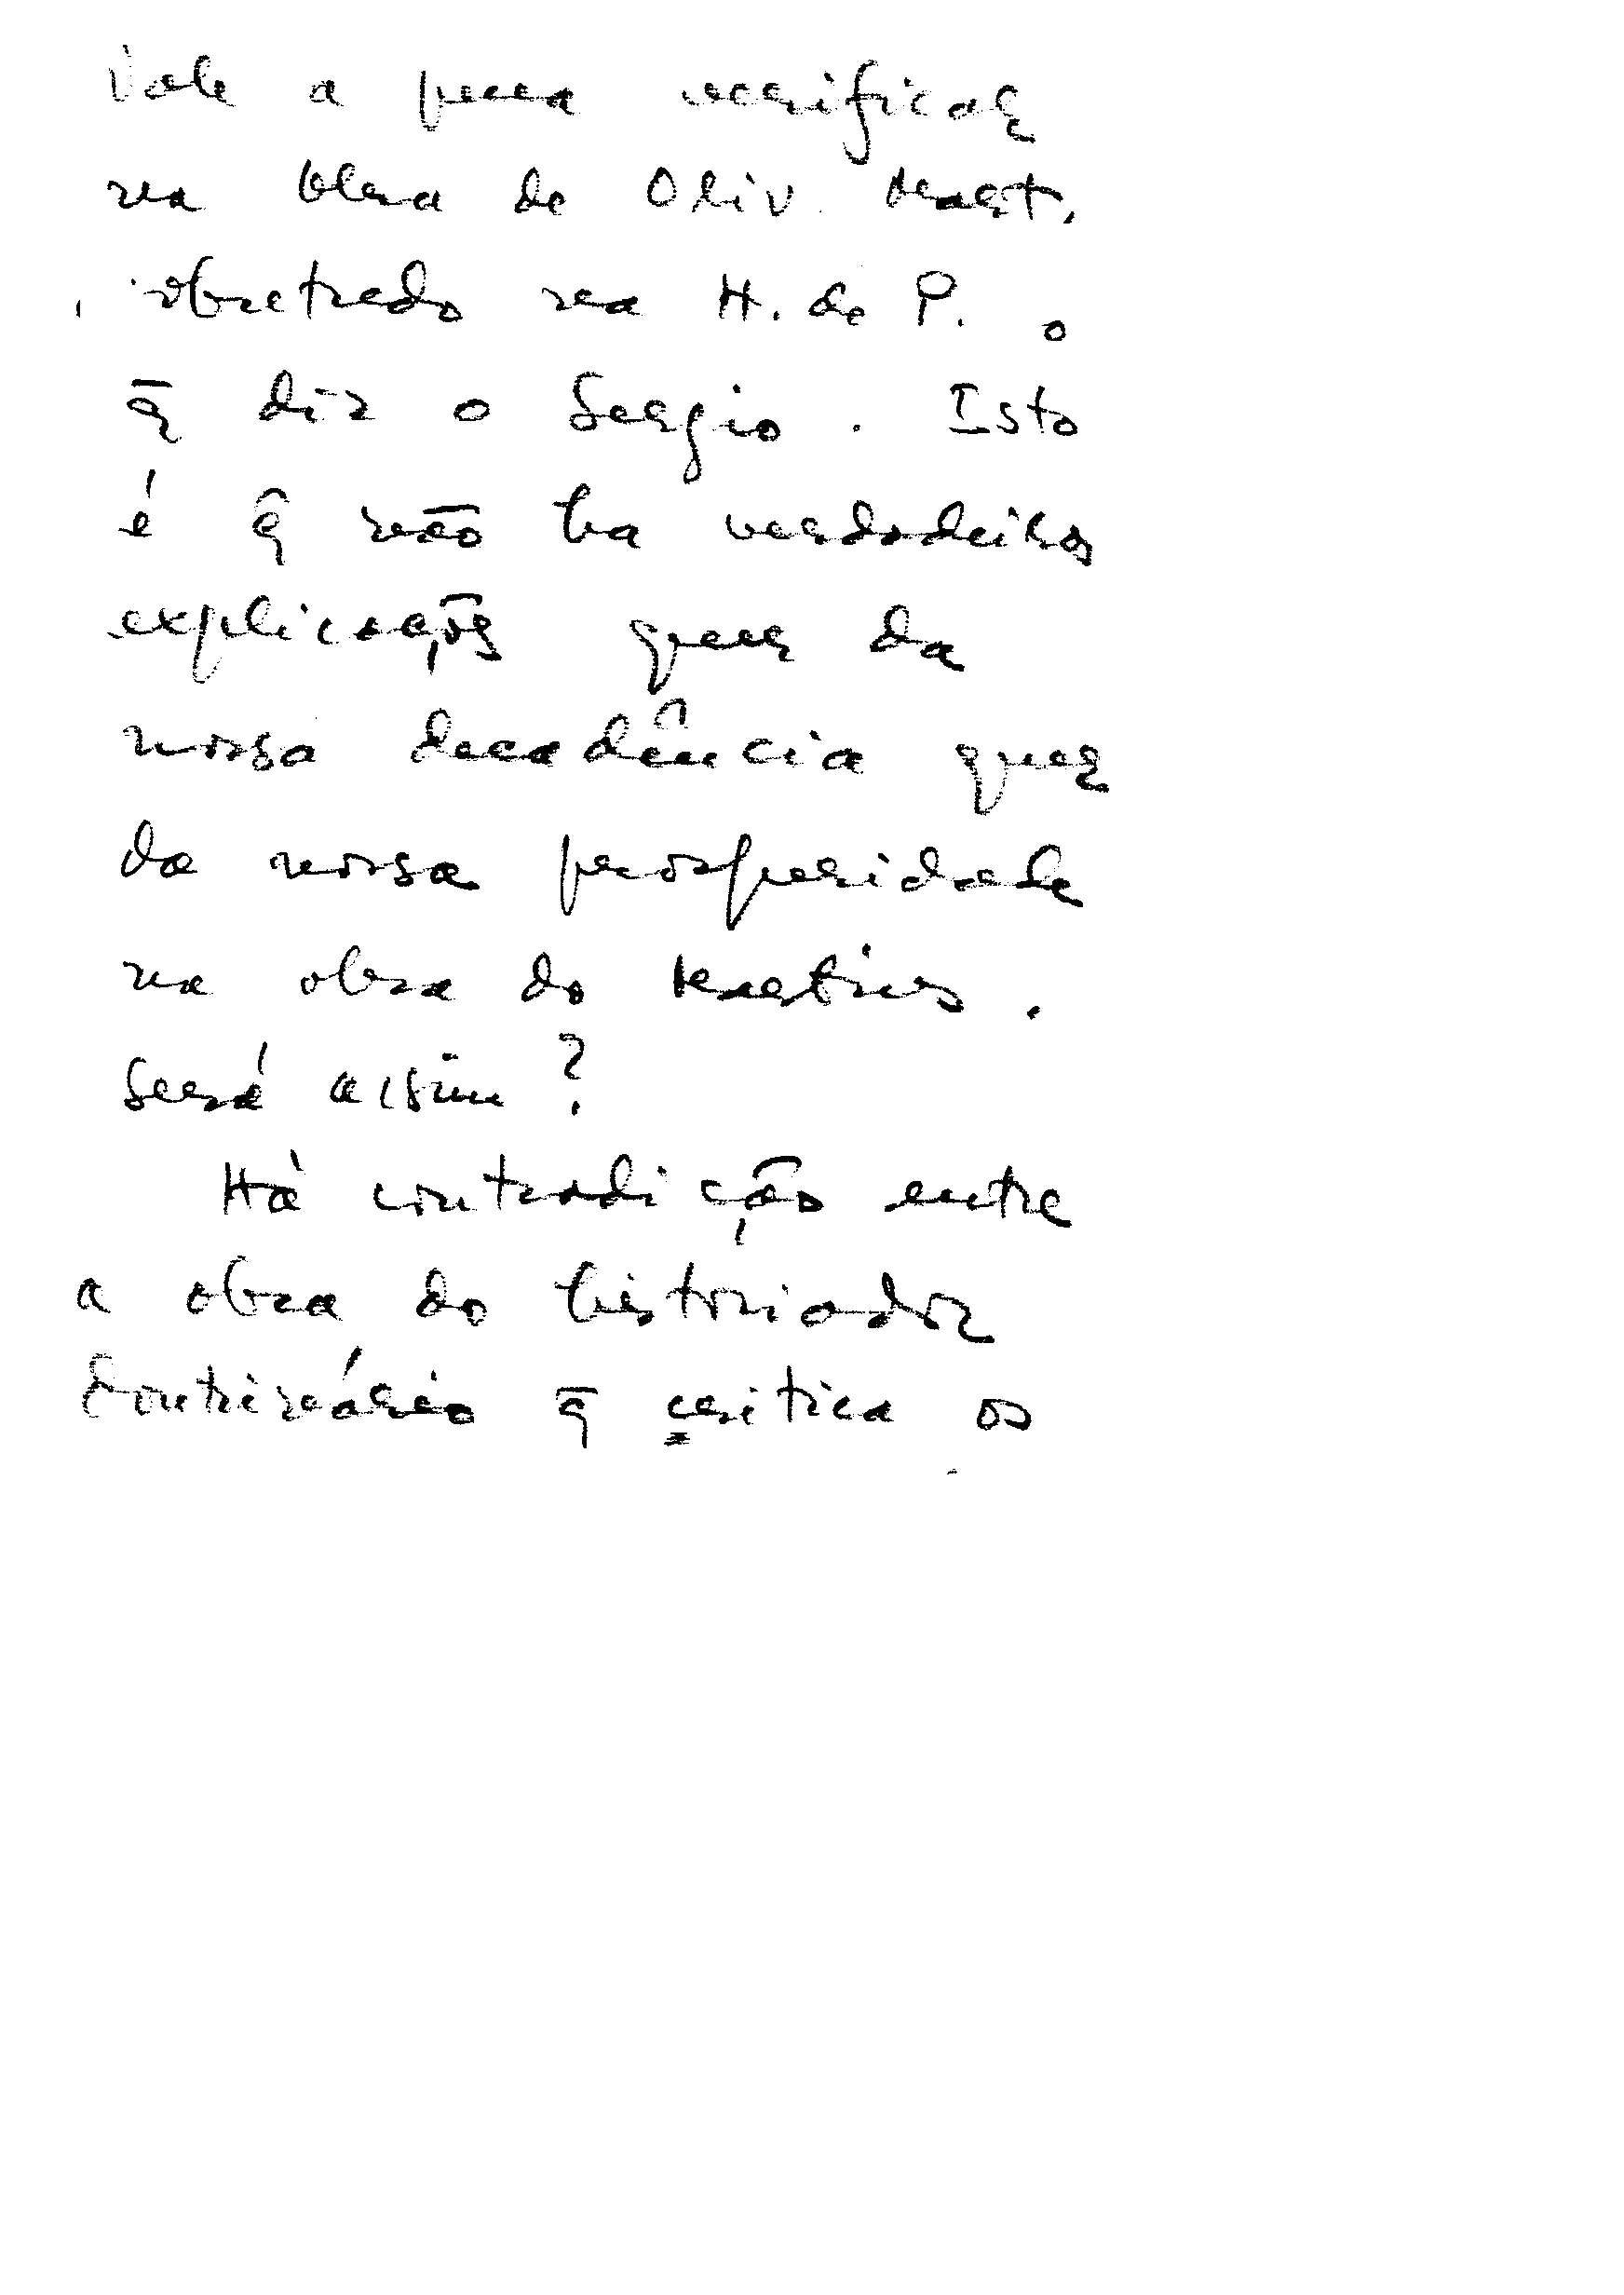 Vale a pena verificar
na obra de Oliv. Mart.
sobretudo na H. de P. o
q̄ diz o Sergio. Isto
é q̂ não ha verdadeiras
explicações quer da
nossa decadência quer
da nossa prosperidade
na obra do Martins.
Será assim?
Há contradição entre
a obra do historiador
doutrinário q̄ critica os